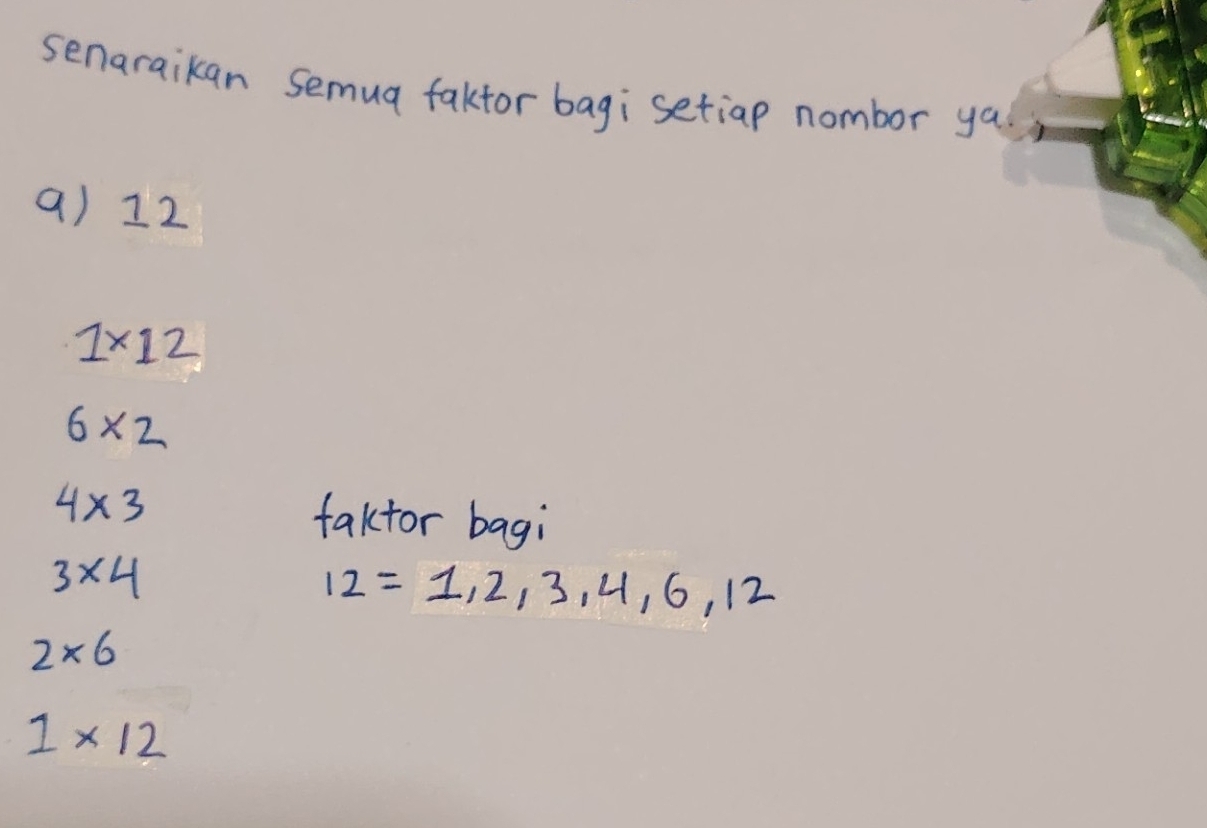 senaraikan semua faktor bagi setiap nombor
a) 12
1×12
6×2
4×3
3×4
2×6
1×12
faktor bagi
12 = 1,2,3,4,6,12